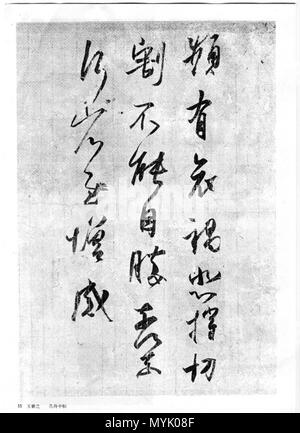 頻有哀禍悲摧切
割不能自勝奈何奈
何省慰增感
王羲之 孔侍中帖
alamy